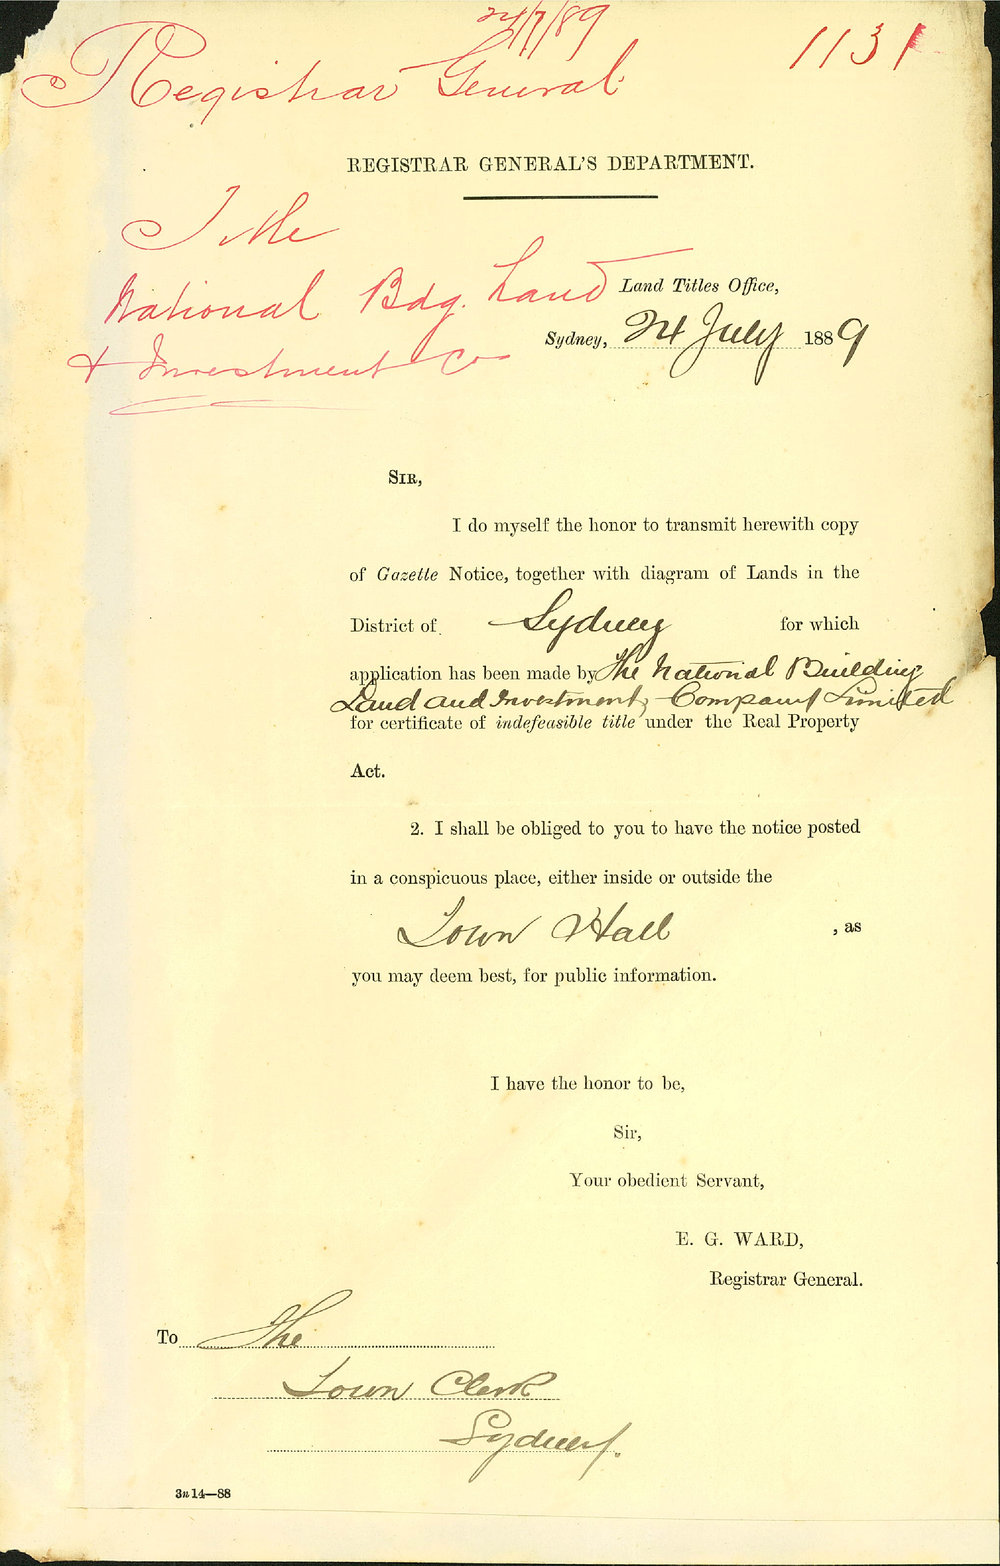 24/7/89
1131
Registrar General
REGISTRAR GENERAL'S DEPARTMENT.
Title
National Bdg. Land
& Investment Co
Land Titles Office,
Sydney, 24 July 1889
SIR,
I do myself the honor to transmit herewith copy
of Gazette Notice, together with diagram of Lands in the
District of Sydney for which
application has been made by The National Building
Land and Investment Company Limited
for certificate of indefeasible title under the Real Property
Act.
2. I shall be obliged to you to have the notice posted
in a conspicuous place, either inside or outside the
Town Hall , as
you may deem best, for public information.
I have the honor to be,
Sir,
Your obedient Servant,
E. G. WARD,
Registrar General.
To The
Town Clerk
Sydney.
3n14—88